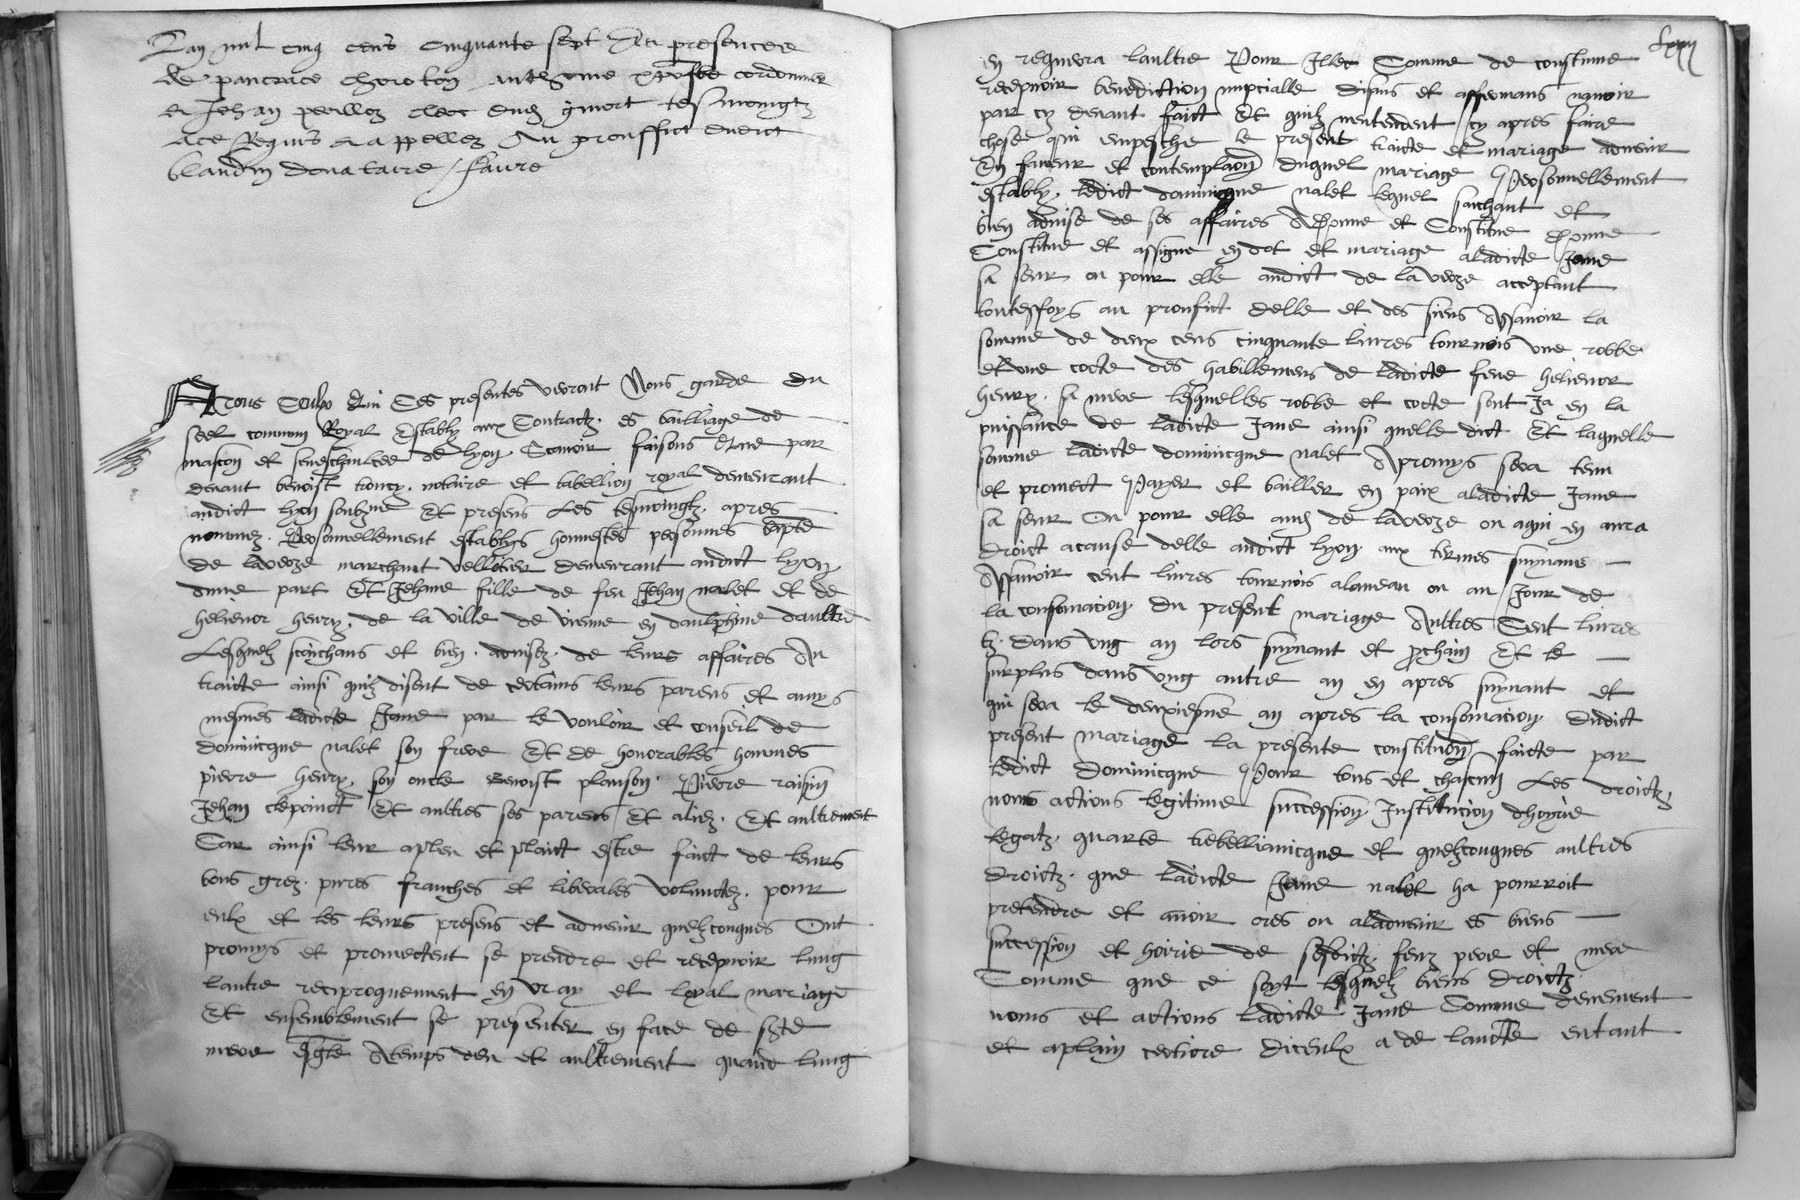 Lan mil cinq cens cinquante sept En presence
de pancrace choroton anthoine cordonnier
et Jehan clerc tesmoingtz
Ace Requis et appellez Au prouffict dudict
blandin donataire / Faure
A Tous Ceulx Qui Ces presentes verront Nous garde du
seel commun Royal Estably aux Contractz es bailliage de
mascon et seneschulcee de lyon Scavoir faisons Que par
devant benoist troncy notaire et tabellion royal demeurant
audict lyon soubzne Et presens Les tesmoingtz apres
nommez Personnellement establys honnestes personnes
de laveoze marchant vellotier demeurant audict lyon
dune part Et Jehanne fille de feu Jehan nalet et de
helienor henry de la ville de vienne en daulphine daultre
Lesquelz saichans et bien advisez de leurs affaires Au
traicte ainsi quilz disent de certains leurs parens et amys
mesmes ladicte Jane par le vouloir et conseil de
dominicque nalet son frere Et de honorables hommes
pierre henry son oncle Benoist planson Pierre raisin
Jehan clepoinct Et aultres ses parens Et aliez Et aultrement
Car ainsi leur apleu et plaict estre faict de leurs
bons grez pures franches et liberales voluntez pour
eulx et les leurs presens et advenir quelzconques Ont
promys et promectent se prendre et recepvoir lung
lautre reciproquement en vray et loyal mariage
Et ensemblement se presenter en face de ste
mere esgle Atemps deu et aultrement quand lung
en requerra laultre Pour Illec Comme de coustume
recepvoir benediction nupcialle disans et affermans navoir
par cy devant faict Et quilz nentendent cy apres faire
chose qui empesche le present traicte et mariage advenir
En faveur et contemplaon duquel mariage Personnellement
estably ledict dominicque nalet lequel saichant et
bien advise de ses affaires A donne et Constitue donne
Constitue et assigne en dot et mariage aladicte Jane
sa seur ou pour elle audict de laveoze acceptant
toutesfoys au proufict delle et des siens Assavoir la
somme de deux cens cinquante livres tournois une robbe
et une cotte des habillemens de ladicte feue helienor
henry sa mere lesquelles robbe et cotte sont Ja en la
puissance de ladicte Jane ainsi quelle dict Et laquelle
somme ladicte dominicque nalet Apromys sera tenu
et promect Payer et bailler en paix aladicte Jane
sa seur Ou pour elle aud de laveoze ou aqui en aura
droict acause delle audict lyon aux termes suyvans
Assavoir cent livres tournois alanneau ou au Jour de
la consomacion du present mariage Aultres Cent livres
tz dans ung an lors suyvant et prchain Et le
surplus dans ung autre an en apres suyvant et
qui sera le deuxiesme an apres la consomacion dudict
present mariage la presente constituon faicte par
ledict Dominicque Pour tous et chascun Les droictz
noms actions legitime succession Institucion dhoyrie
legatz quarte trebellianicque et quelzconques aultres
droictz que ladicte Jane nalet ha pourroit
pretendre et avoir ores ou aladvenir es biens
succession et hoirie de sesdictz feuz pere et mere
Comme que ce soyt lesquelz biens droictz
noms et actions ladicte Jane Comme deuement
et aplain certiore diceulx a de laucte entant